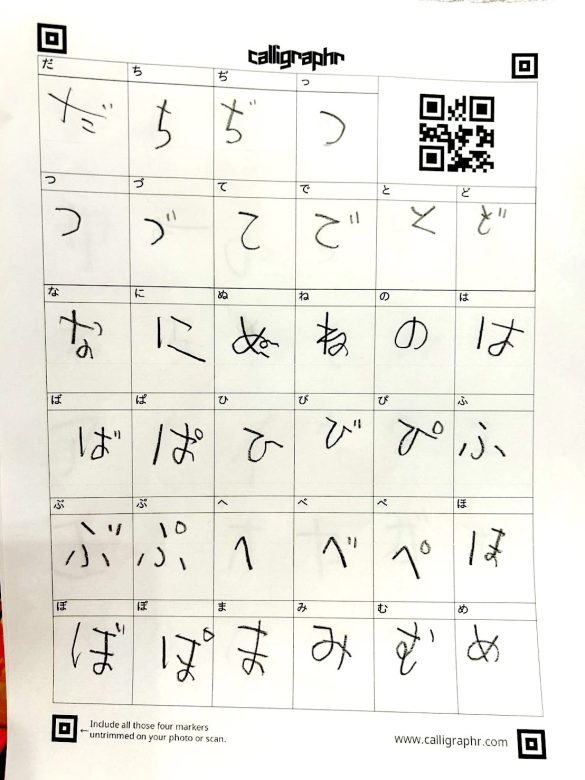 calligraphr
だ ち ぢ っ
だ ち ぢ っ
つ づ て で と ど
つ づ て で と ど
な に ぬ ね の は
な に ぬ ね の は
ば ぱ ひ び ぴ ふ
ば ぱ ひ び ぴ ふ
ぶ ぷ へ べ ぺ ほ
ぶ ぷ へ べ ぺ ほ
ぼ ぽ ま み む め
ぼ ぽ ま み む め
Include all those four markers
untrimmed on your photo or scan.
www.calligraphr.com